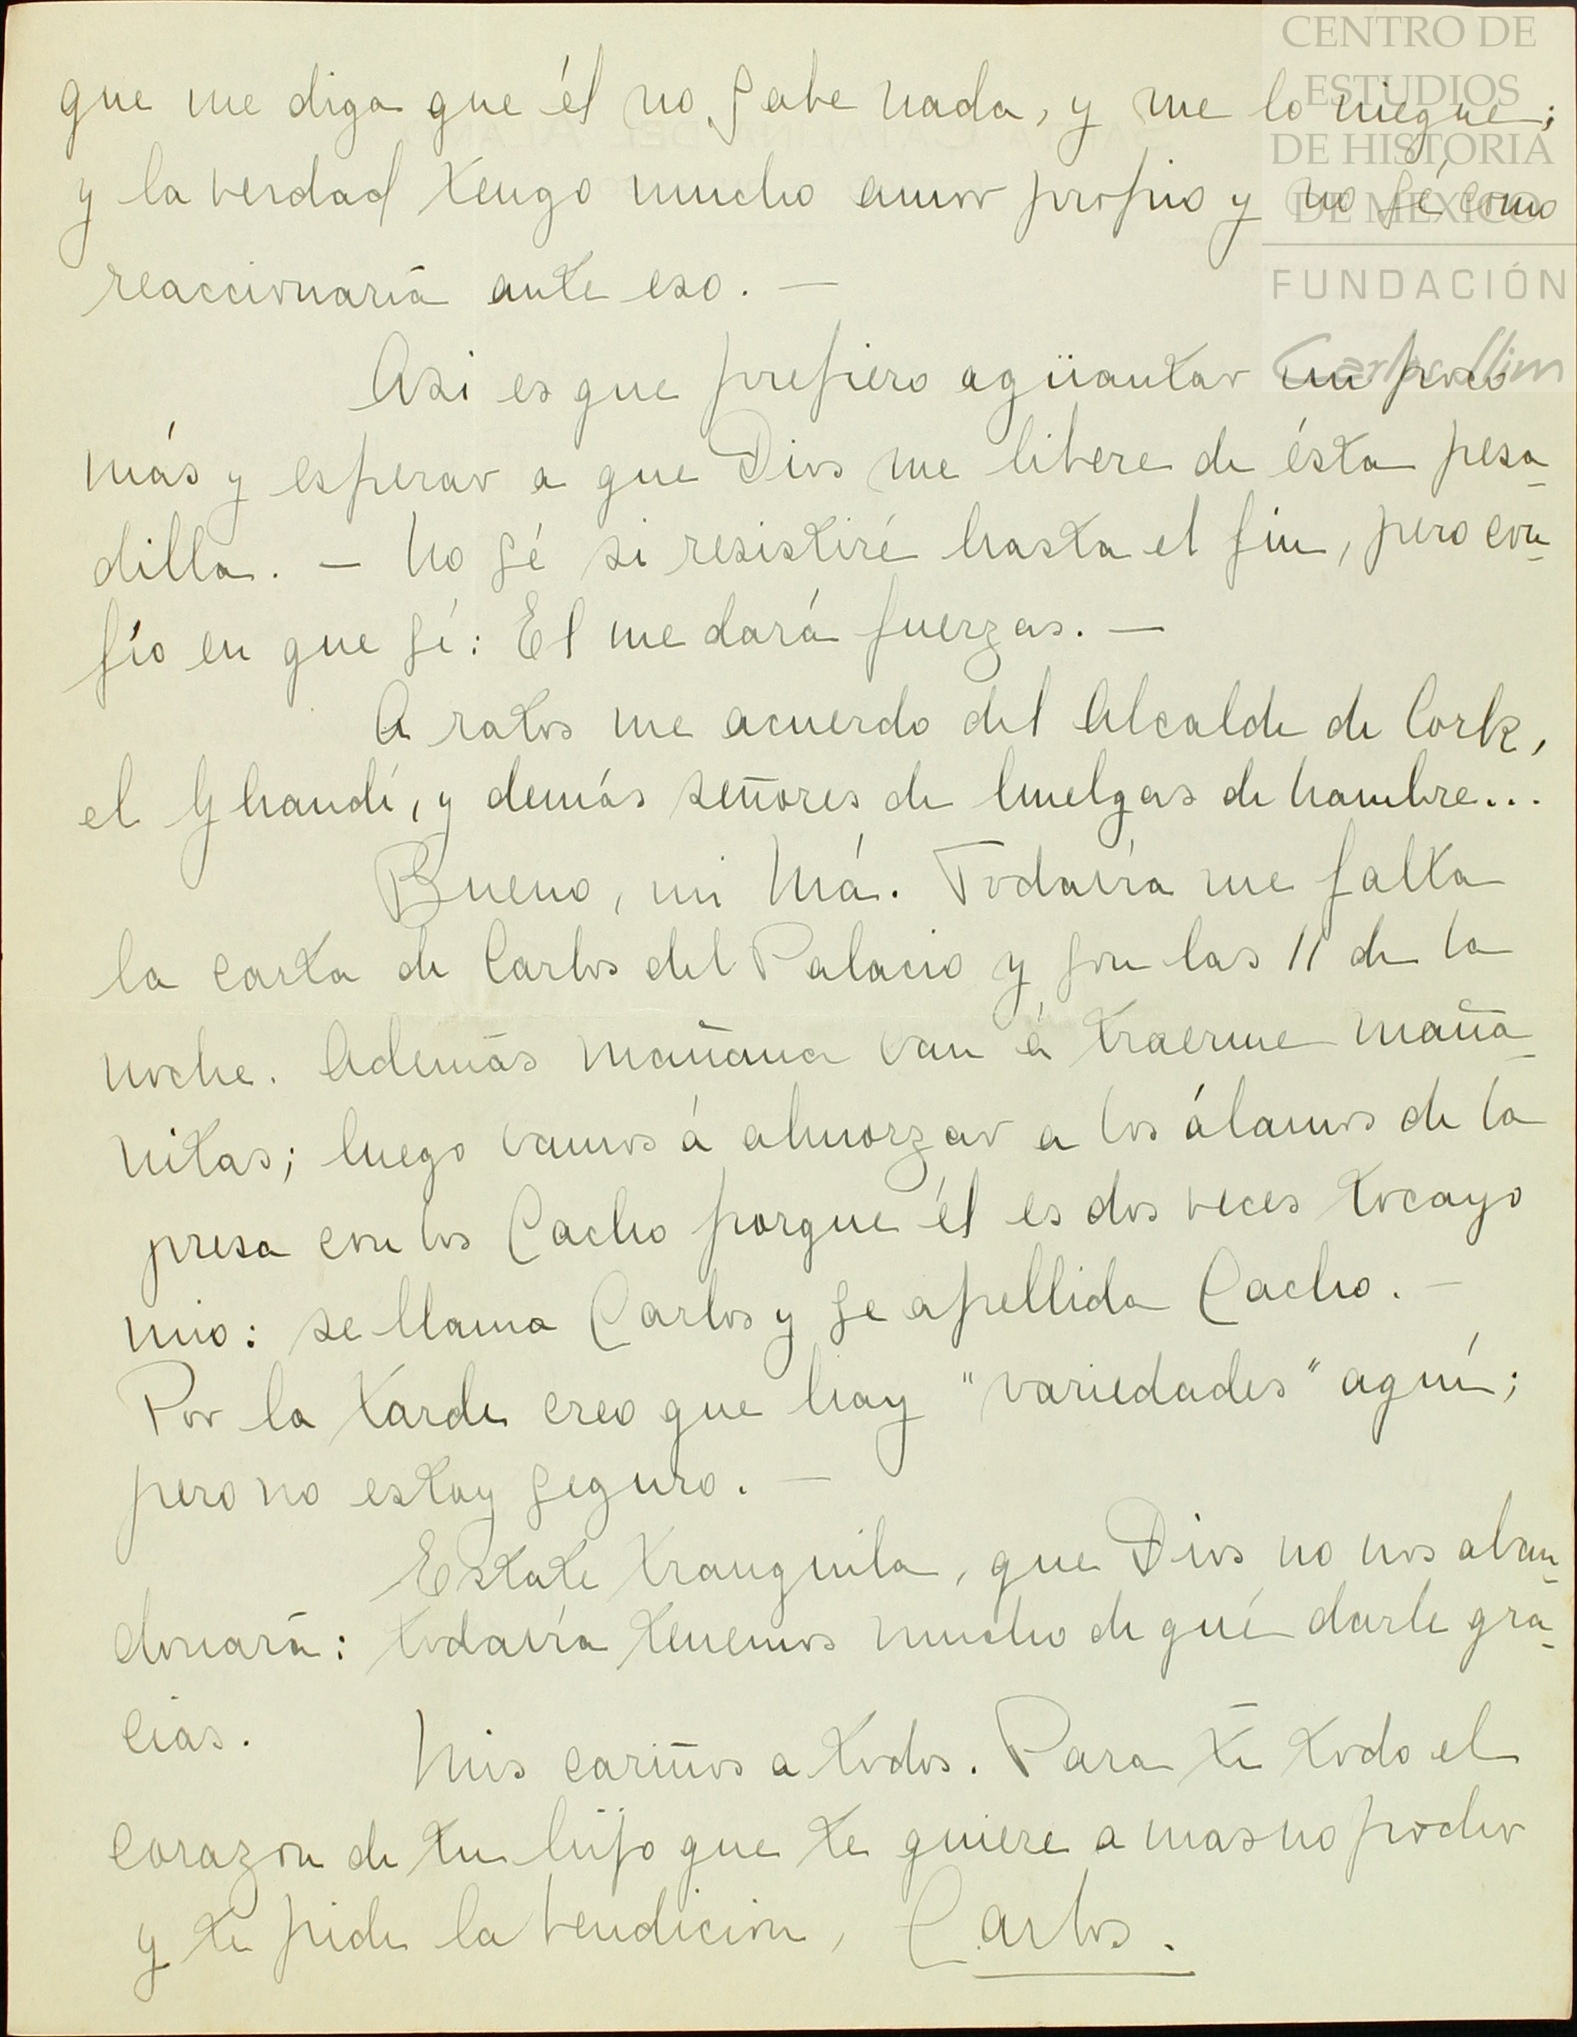 CENTRO DE
ESTUDIOS
DE HISTORIA
DE MÉXICO
FUNDACIÓN
Carlos Slim
que me diga que él no sabe nada, y me lo niegue;
y la verdad tengo mucho amor propio y no sé como
reaccionaría ante eso. —
Asi es que prefiero agüantar un poco
más y esperar a que Dios me libere de ésta pesa-
dilla. — No sé si resistiré hasta el fin, pero con-
fío en que sí: El me dará fuerzas. —
A ratos me acuerdo del Alcalde de Cork,
el Ghandí, y demás señores de huelgas de hambre...
Bueno, mi Má. Todavía me falta
la carta de Carlos del Palacio y son las 11 de la
noche. Además mañana van á traerme maña-
nitas; luego vamos á almorzar a los álamos de la
presa con los Cacho porque él es dos veces tocayo
mio: se llama Carlos y se apellida Cacho. —
Por la tarde creo que hay "variedades" aquí;
pero no estoy seguro. —
Estate tranquila, que Dios no nos aban-
donará: todavía tenemos mucho de qué darle gra-
cias.
Mis cariños a todos. Para tí todo el
corazon de tu hijo que te quiere a mas no poder
y te pide la bendicion, Carlos.